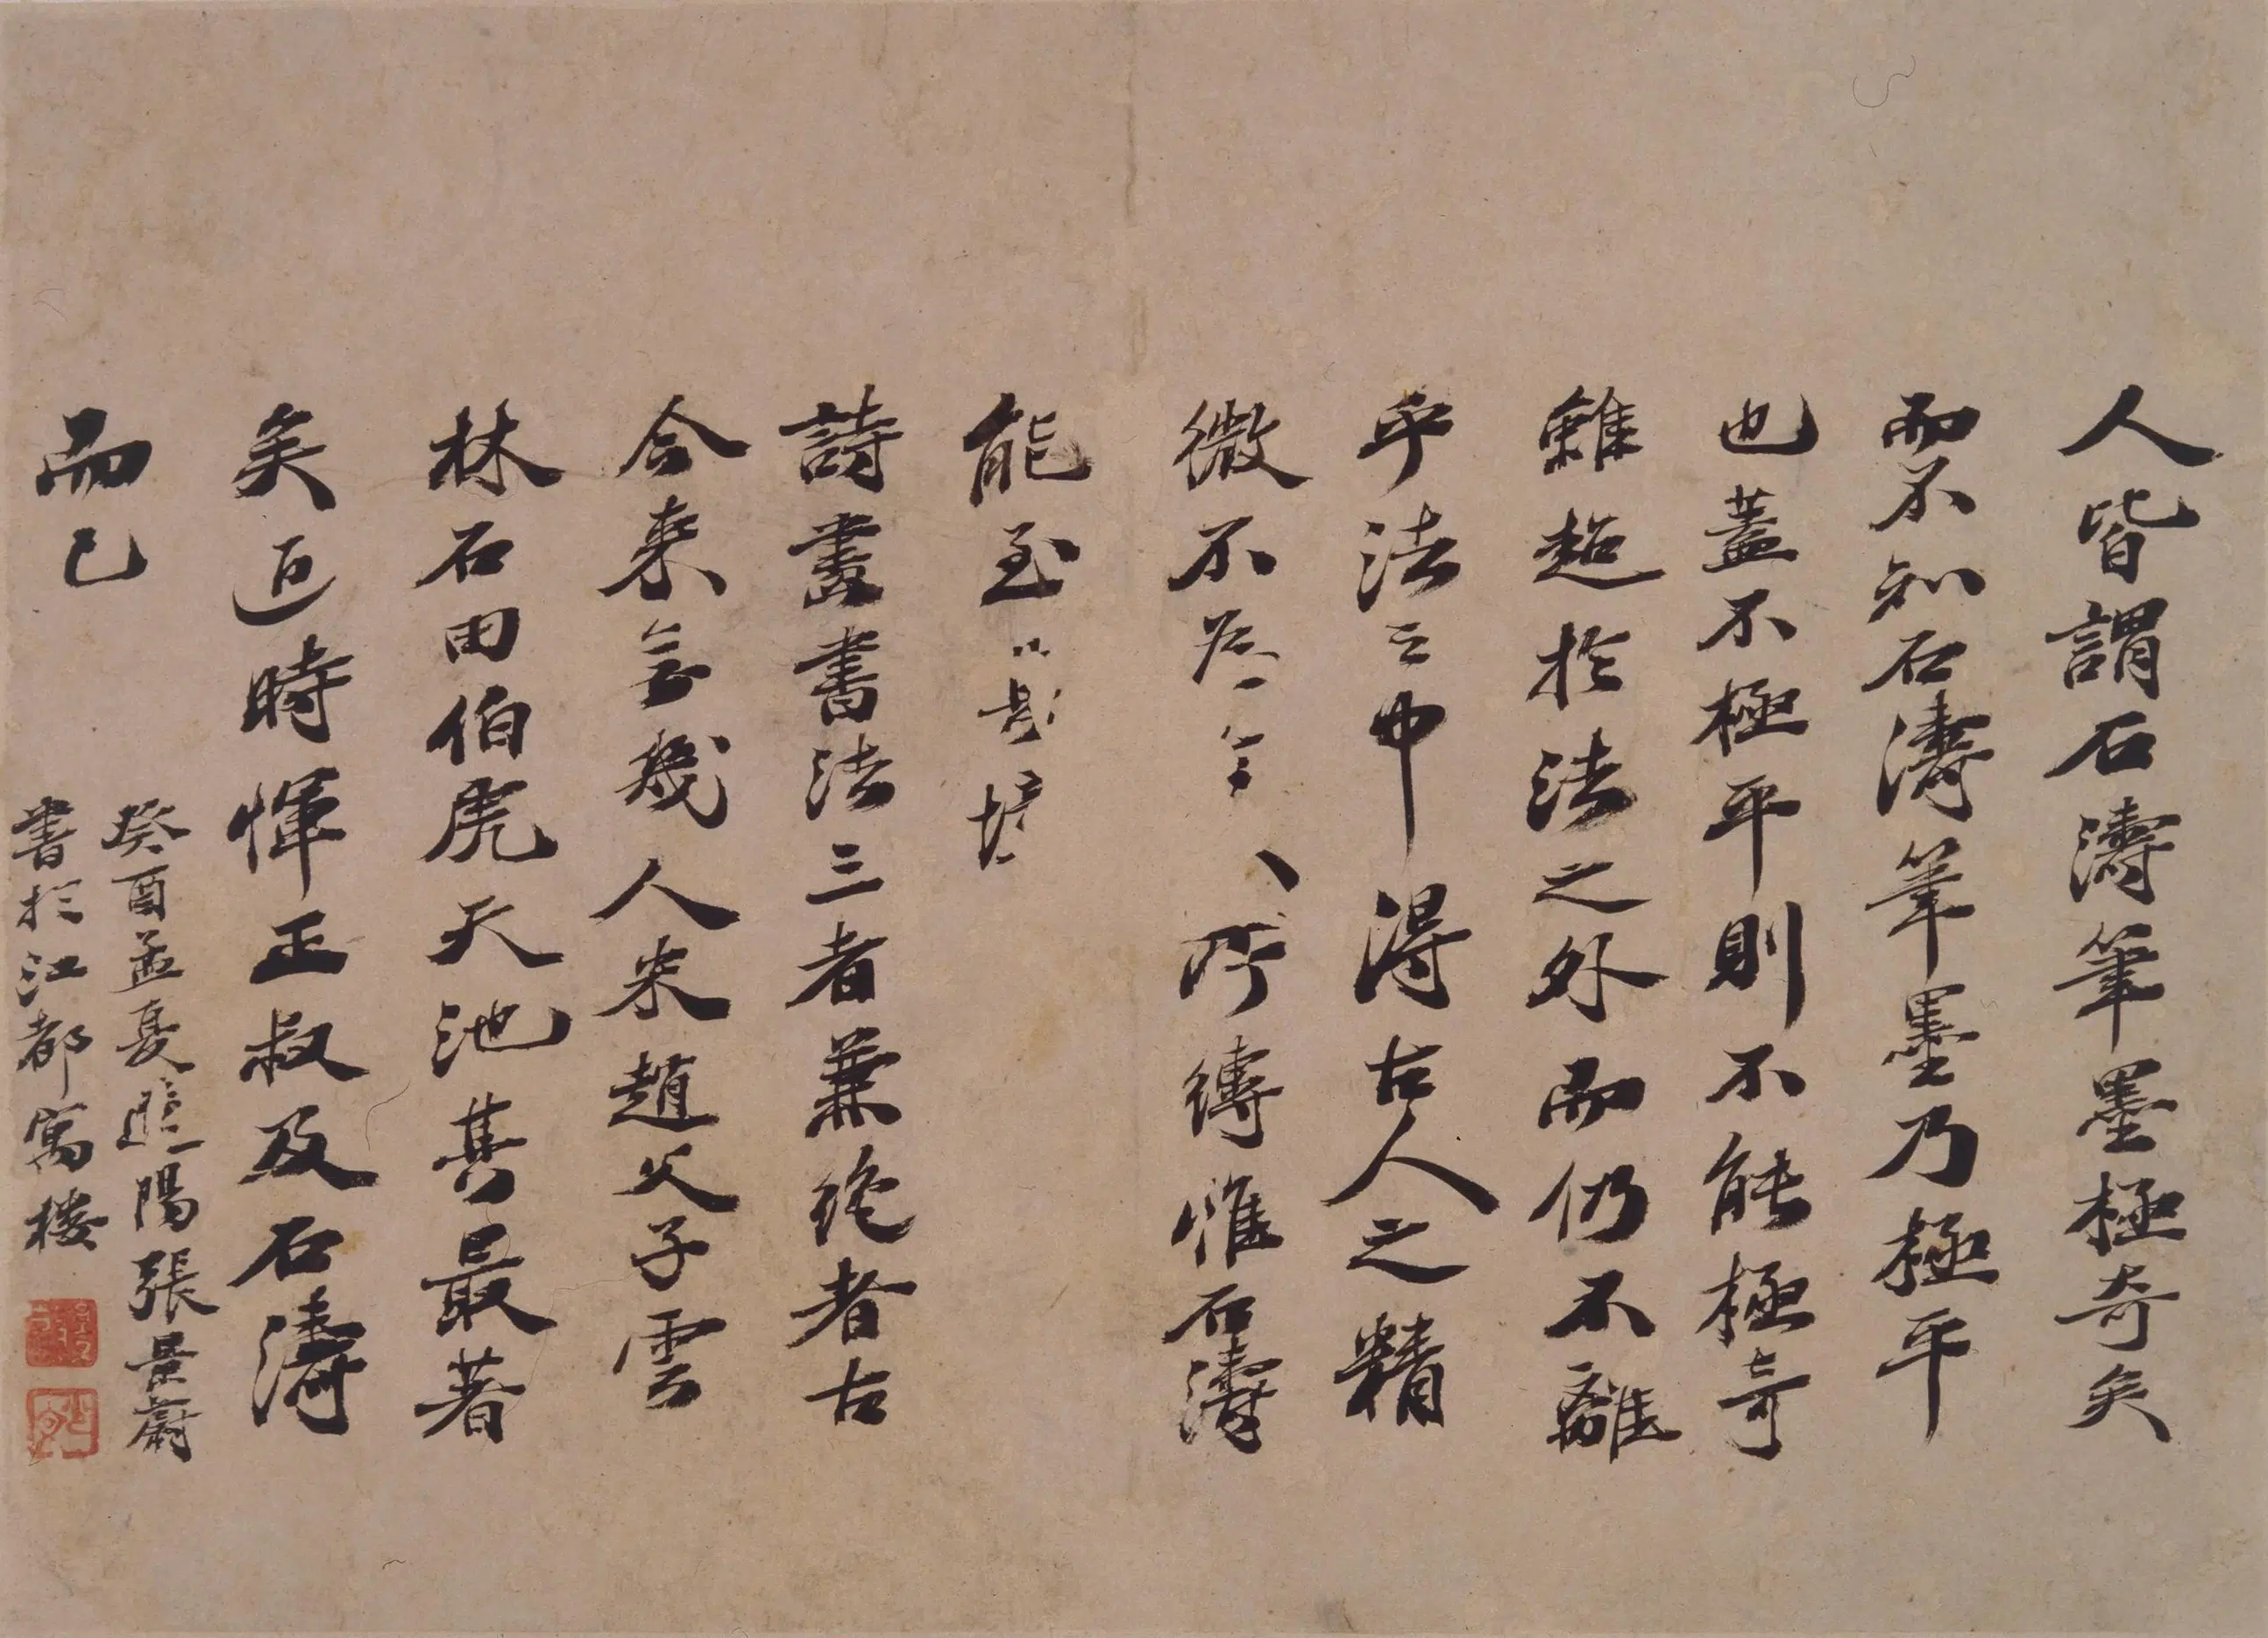 人皆謂石濤筆墨極奇矣
而不知石濤筆墨乃極平
也蓋不極平則不能極奇
雖超於法之外而仍不離
乎法之中得古人之精
微不為古人所縛惟石濤
能至
詩畫書法三者兼絶者古
今来無幾人宋趙父子雲
林石田伯虎天池其最著
矣近時惲正叔及石濤
而已
癸酉孟夏 陽張景蔚
書於江都寓楼